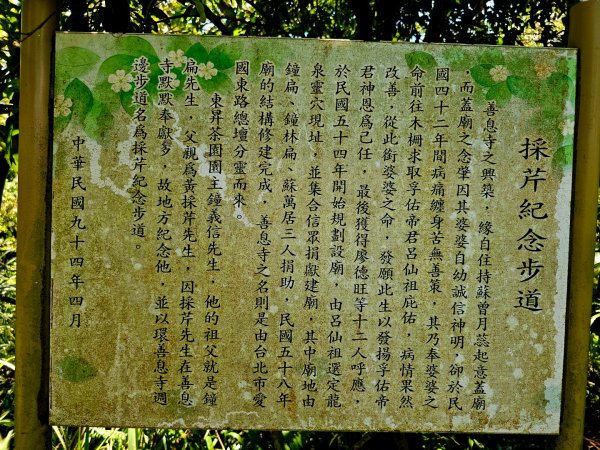 採芹紀念步道
善息寺之興築，緣自住持蘇曾月蕊起意蓋廟
，而蓋廟之念肇因其婆婆自幼誠信神明，卻於民
國四十二年間病痛纏身古無善策，其乃奉婆婆之
命前往木柵求取孚佑帝君呂仙祖庇佑，病情果然
改善，從此銜婆婆之命，發願此生以發揚孚佑帝
君神恩為己任，最後獲得廖德旺等十二人呼應，
於民國五十四年開始規劃設廟，由呂仙祖選定龍
泉靈穴現址，並集合信眾捐獻建廟，其中廟地由
鐘扁、鐘林扁、蘇萬居三人捐助，民國五十八年
廟的結構修建完成，善息寺之名則是由台北市愛
國東路總壇分靈而來。
東昇茶園園主鐘義信先生，他的祖父就是鐘
扁先生，父親為黃採芹先生，因採芹先生在善息
寺默默奉獻多，故地方紀念他，並以環善息寺週
邊步道名為採芹紀念步道。
中華民國九十四年四月